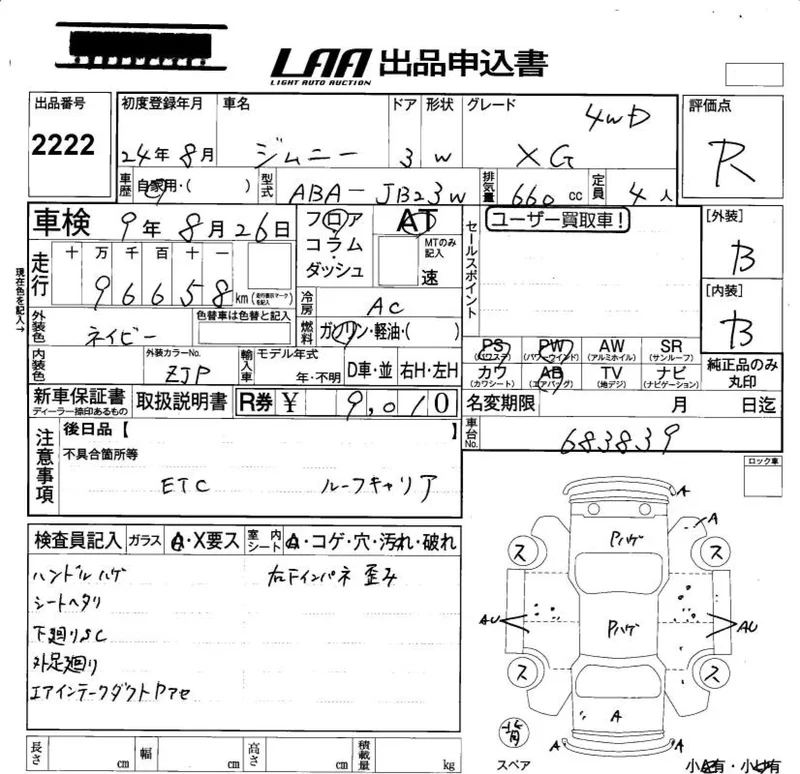 LAA 出品申込書
LIGHT AUTO AUCTION
出品番号 2222
初度登録年月 24年8月
車名 ジムニー
ドア 3
形状 W
グレード 4WD XG
評価点 R
車歴 自家用・( )
型式 ABA-JB23W
排気量 660 cc
定員 4人
車検 9年8月26日
フロア・コラム・ダッシュ
AT
MTのみ記入 速
セールスポイント ユーザー買取車!
[外装] B
[内装] B
現在色を記入→
走行 十万千百十一
96658 km (走行表示マークを記入)
冷房 AC
燃料 ガソリン・軽油・( )
外装色 ネイビー
色替車は色替と記入
内装色
外装カラーNo. ZJP
輸入車 モデル年式 年・不明
D車・並 右H・左H
PS (パワステ) PW (パワーウインド) AW (アルミホイル) SR (サンルーフ)
カワ (カワシート) AB (エアバッグ) TV (地デジ) ナビ (ナビゲーション)
純正品のみ丸印
新車保証書 ディーラー捺印あるもの
取扱説明書
R券 ¥ 9,010
名変期限 月 日迄
車台No. 683839
注意事項
後日品【 】
不具合箇所等
ETC ルーフキャリア
ロック車
検査員記入 ガラス A・X要ス 室内シート A・コゲ・穴・汚れ・破れ
ハンドルハゲ 右下インパネ歪み
シートヘタリ
下廻りSC
外足廻り
エアインテークダクトPアセ
A
A
Pハゲ
ス ス
AU Pハゲ AU
ス ス
A
背 A A
スペア
小 有・小 有
長さ cm 幅 cm 高さ cm 積載量 kg